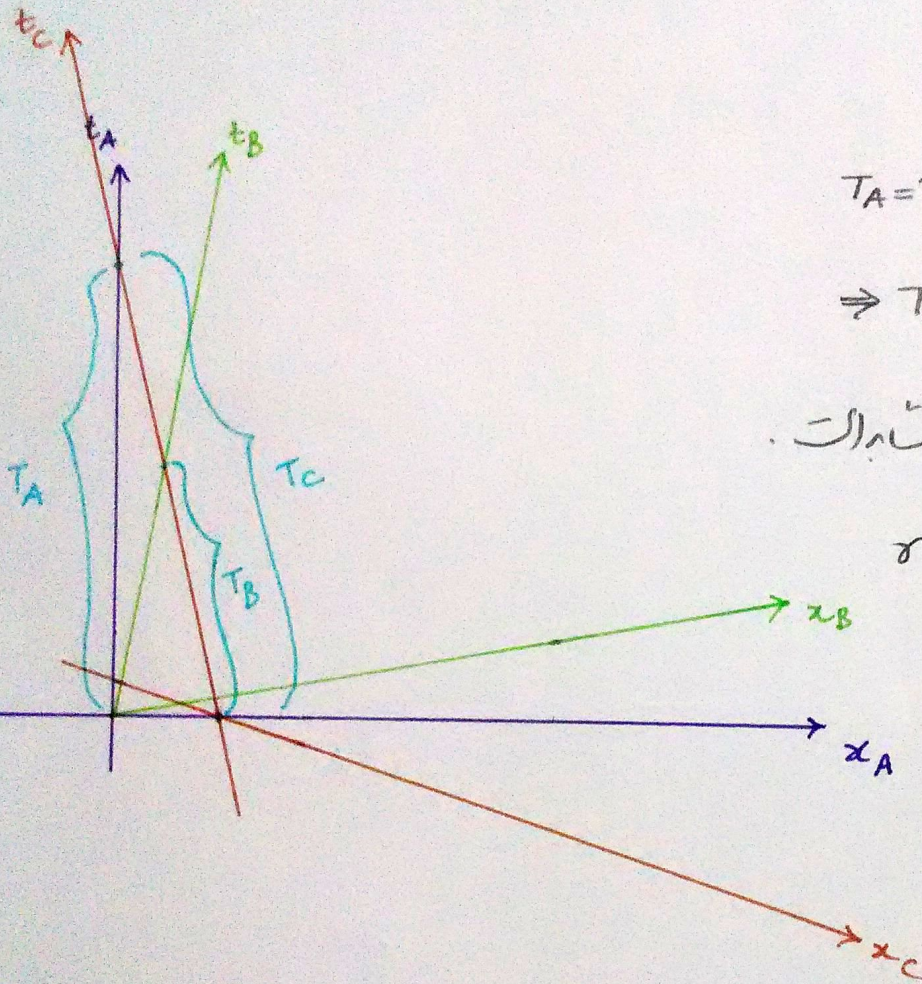 t_C
t_A
t_B
T_A =
⇒ T
T_A
T_C
T_B
x_B
x_A
x_C